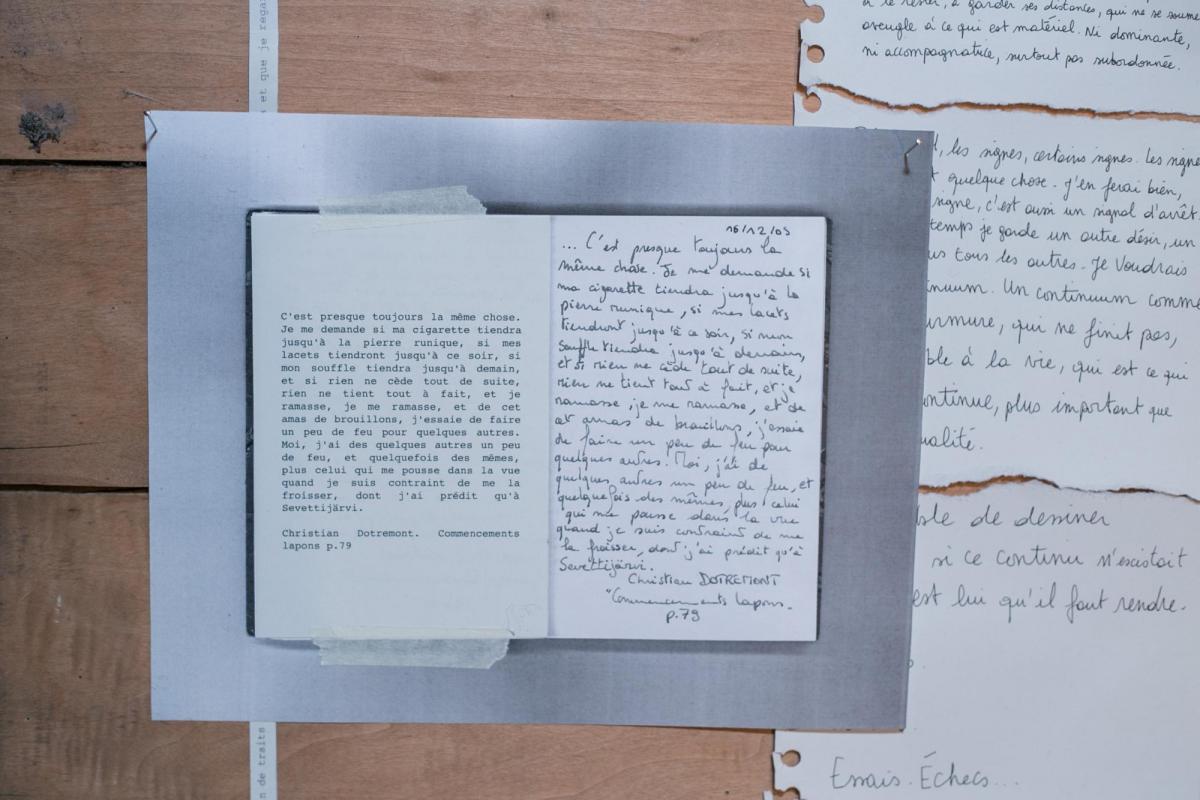 s et que je regar
n de traits
C'est presque toujours la même chose.
Je me demande si ma cigarette tiendra
jusqu'à la pierre runique, si mes
lacets tiendront jusqu'à ce soir, si
mon souffle tiendra jusqu'à demain,
et si rien ne cède tout de suite,
rien ne tient tout à fait, et je
ramasse, je me ramasse, et de cet
amas de brouillons, j'essaie de faire
un peu de feu pour quelques autres.
Moi, j'ai des quelques autres un peu
de feu, et quelquefois des mêmes,
plus celui qui me pousse dans la vue
quand je suis contraint de me la
froisser, dont j'ai prédit qu'à
Sevettijärvi.
Christian Dotremont. Commencements
lapons p.79
16/12/09
... C'est presque toujours la
même chose. Je me demande si
ma cigarette tiendra jusqu'à la
pierre runique, si mes lacets
tiendront jusqu'à ce soir, si mon
souffle tiendra jusqu'à demain,
et si rien ne cède tout de suite,
rien ne tient tout à fait, et je
ramasse, je me ramasse, et de
cet amas de brouillons, j'essaie
de faire un peu de feu pour
quelques autres. Moi, j'ai de
quelques autres un peu de feu, et
quelquefois des mêmes, plus celui
qui me pousse dans la vue
quand je suis contraint de me
la froisser, dont j'ai prédit qu'à
Sevettijärvi.
Christian DOTREMONT
"Commencements lapons.
p.79
à le rester, à garder ses distances, qui ne se soume
aveugle à ce qui est matériel. Ni dominante,
ni accompagnatrice, surtout pas subordonnée.
les signes, certains signes. Les signe
quelque chose. J'en ferai bien,
signe, c'est aussi un signal d'arrêt.
temps je garde un autre désir, un
us tous les autres. Je voudrais
nuum. Un continuum comme
urmure, qui ne finit pas,
ble à la vie, qui est ce qui
ontinue, plus important que
ualité.
ble de dessiner
si ce continu n'existait
est lui qu'il faut rendre.
Essais. Échecs...